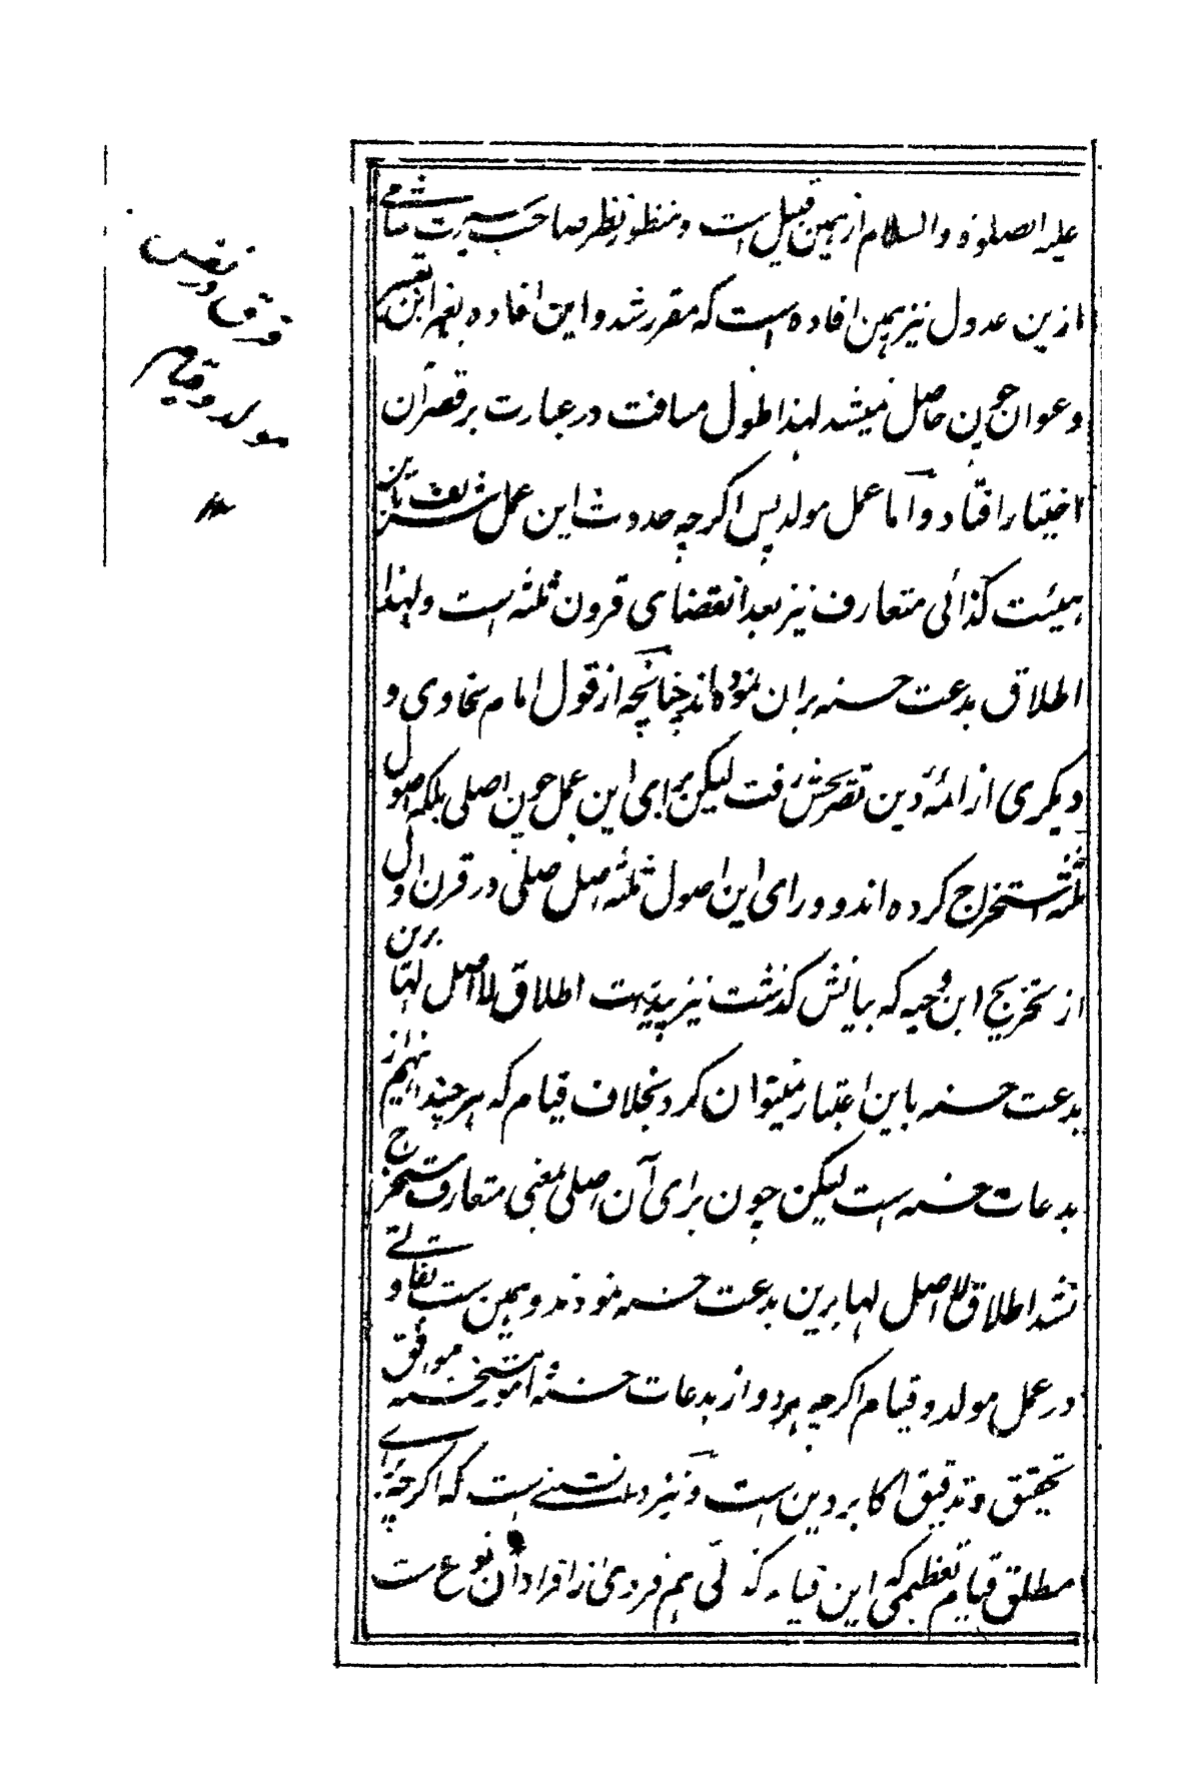 علیه الصلوة والسلام ازهمین قبیل است و منظور نظر صاحب سیرت شامی
ازین عدول نیز همین افاده است که مقرر شد و این افاده بغیر این تعبیر
و عنوان چون حاصل نمیشد لهذا طول مسافت در عبارت بر قصر آن
اختیار افتاد و اما عمل مولد پس اگرچه حدوث این عمل شریف باین
هیئت کذائی متعارف نیز بعد انقضای قرون ثلثه است و لهذا
اطلاق بدعت حسنه بران نموده اند چنانچه از قول امام سخاوی و
دیگری از ائمهٔ دین تصریحش رفت لیکن برای این عمل چون اصلی بلکه اصول
ثلثه استخراج کرده اند و ورای این اصول ثلثه اصل اصلی در قرن اول
از تخریج ابن دحیه که بیانش گذشت نیز پیداست اطلاق لا اصل لها برین
بدعت حسنه باین اعتبار نمیتوان کرد بخلاف قیام که هرچند اینهم از
بدعات حسنه است لیکن چون برای آن اصلی بمعنی متعارف مستخرج
نشد اطلاق لا اصل لها برین بدعت حسنه نمودند و همین است تفاوتی
در عمل مولد و قیام اگرچه هر دو از بدعات حسنه امور مستحسنه موافق
تحقیق و تدقیق اکابر دین است و نیز دانستنی است که اگرچه برای
مطلق قیام تعظیمی که این قیام کذائی هم فردی از افراد آن نوع است
فرق در نفس
مولد و قیام
۱۲